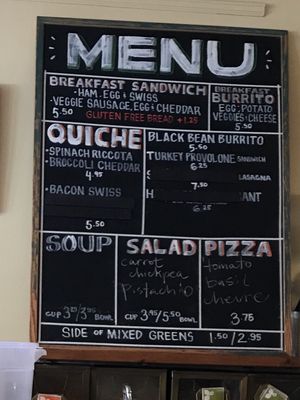 MENU
BREAKFAST SANDWICH
·HAM, EGG & SWISS
·VEGGIE SAUSAGE, EGG & CHEDDAR
5.50 GLUTEN FREE BREAD +1.25
BREAKFAST
BURRITO
EGG, POTATO
VEGGIES & CHEESE
5.50
QUICHE
·SPINACH RICCOTA
·BROCCOLI CHEDDAR
4.95
·BACON SWISS
5.50
BLACK BEAN BURRITO
5.50
TURKEY PROVOLONE SANDWICH
6.25
LASAGNA
7.50
6.25
SOUP
CUP 3.25/3.95 BOWL
SALAD
carrot
chickpea
pistachio
CUP 3.95/5.50 BOWL
PIZZA
tomato
basil
chevre
3.75
SIDE OF MIXED GREENS 1.50/2.95